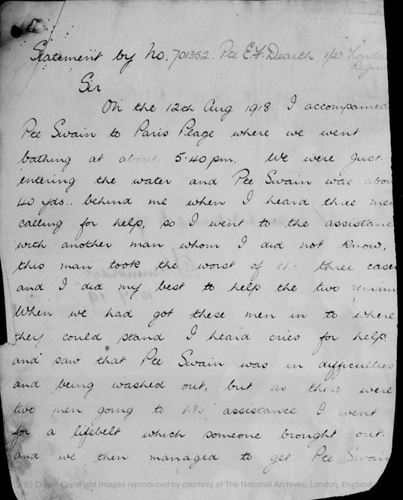 Statement by No. 701362. Pte E.F. Dearth 1/23 London
Regim
Sir
On the 12th Aug 1918. I accompanied
Pte Swain to Paris Plage where we went
bathing at about 5.40 pm. We were just
entering the water and Pte Swain was about
40 yds.. behind me when I heard three men
calling for help, so I went to the assistance
with another man whom I did not know,
this man took the worst of the three cases
and I did my best to help the two remain
When we had got these men in to where
they could stand I heard cries for help
and saw that Pte Swain was in difficulties
and being washed out, but as there were
two men going to his assistance I went
for a lifebelt which someone brought out.
and we then managed to get Pte Swain
(c) Crown Copyright Images reproduced by courtesy of The National Archives, London, England.